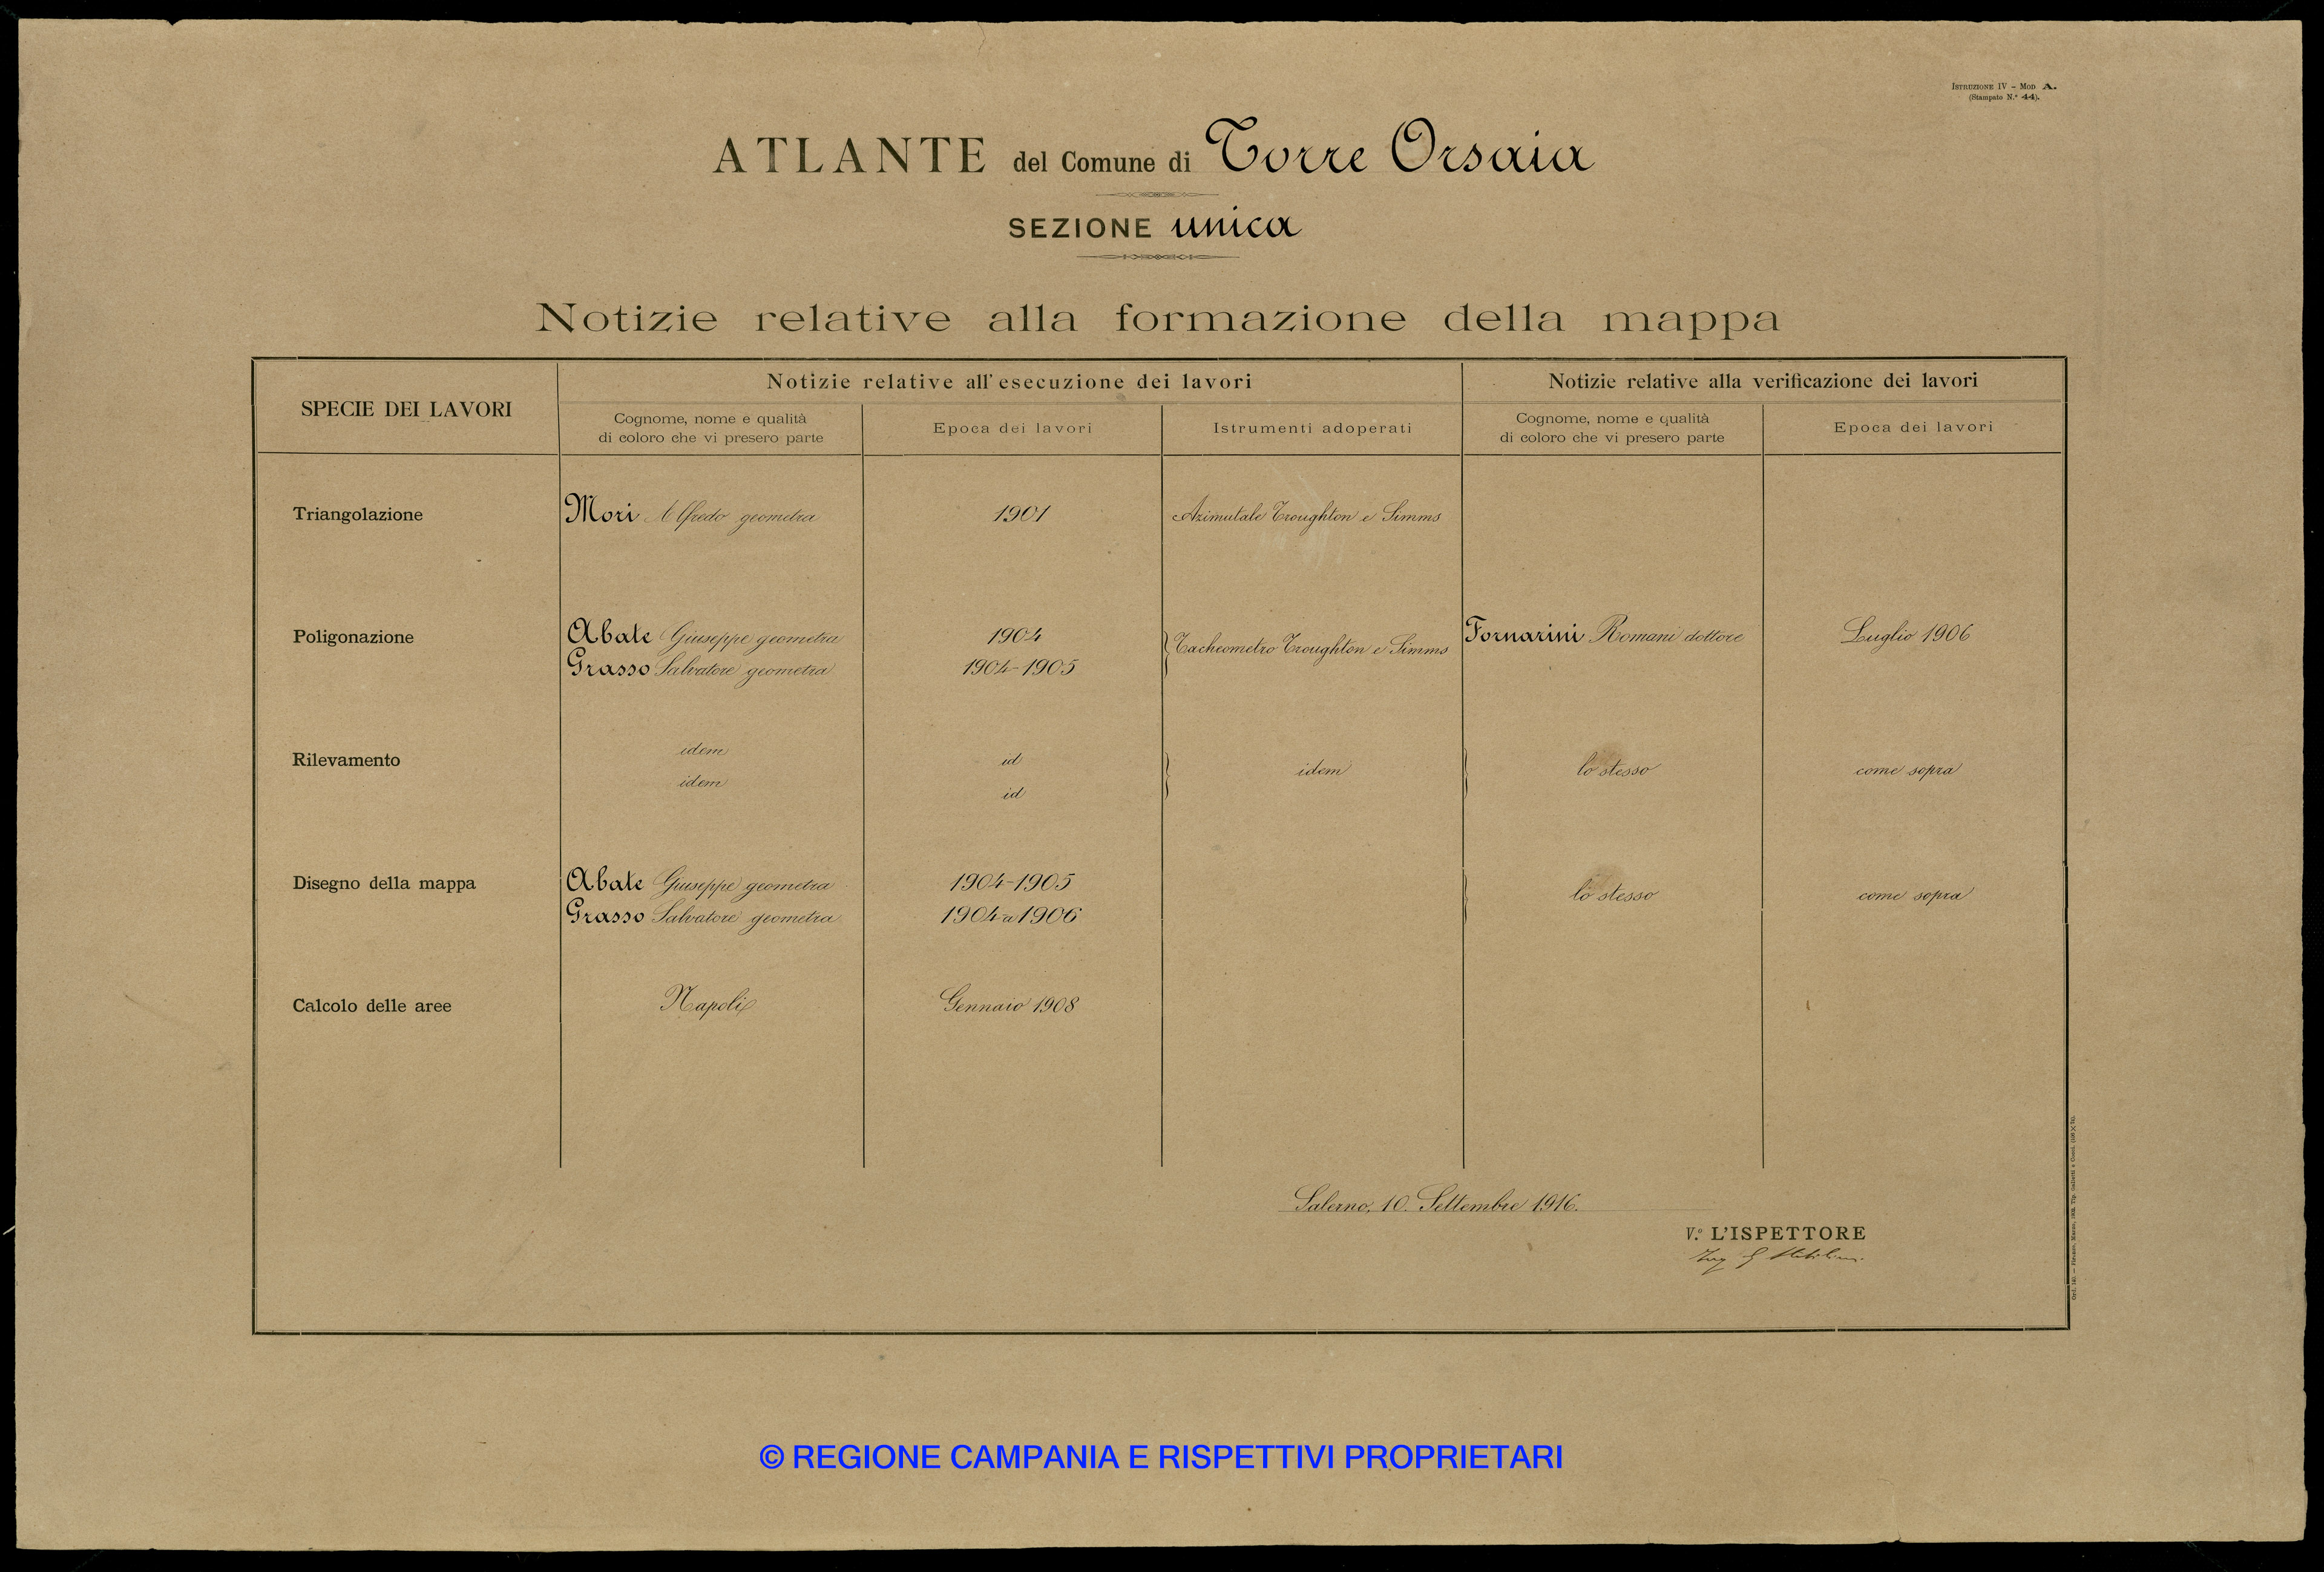 ISTRUZIONE IV – MOD A.
(Stampato N.° 44).
ATLANTE del Comune di Torre Orsaia
SEZIONE unica
Notizie relative alla formazione della mappa
SPECIE DEI LAVORI
Notizie relative all'esecuzione dei lavori
Notizie relative alla verificazione dei lavori
Cognome, nome e qualità
di coloro che vi presero parte
Epoca dei lavori
Istrumenti adoperati
Cognome, nome e qualità
di coloro che vi presero parte
Epoca dei lavori
Triangolazione
Mori Alfredo geometra
1901
Azimutale Troughton e Simms
Poligonazione
Abate Giuseppe geometra
Grasso Salvatore geometra
1904
1904-1905
Tacheometro Troughton e Simms
Fornarini Romani dottore
Luglio 1906
Rilevamento
idem
idem
id
id
idem
lo stesso
come sopra
Disegno della mappa
Abate Giuseppe geometra
Grasso Salvatore geometra
1904-1905
1904 a 1906
lo stesso
come sopra
Calcolo delle aree
Napoli
Gennaio 1908
Salerno, 10. Settembre 1916.
V.° L'ISPETTORE
Ing G
© REGIONE CAMPANIA E RISPETTIVI PROPRIETARI